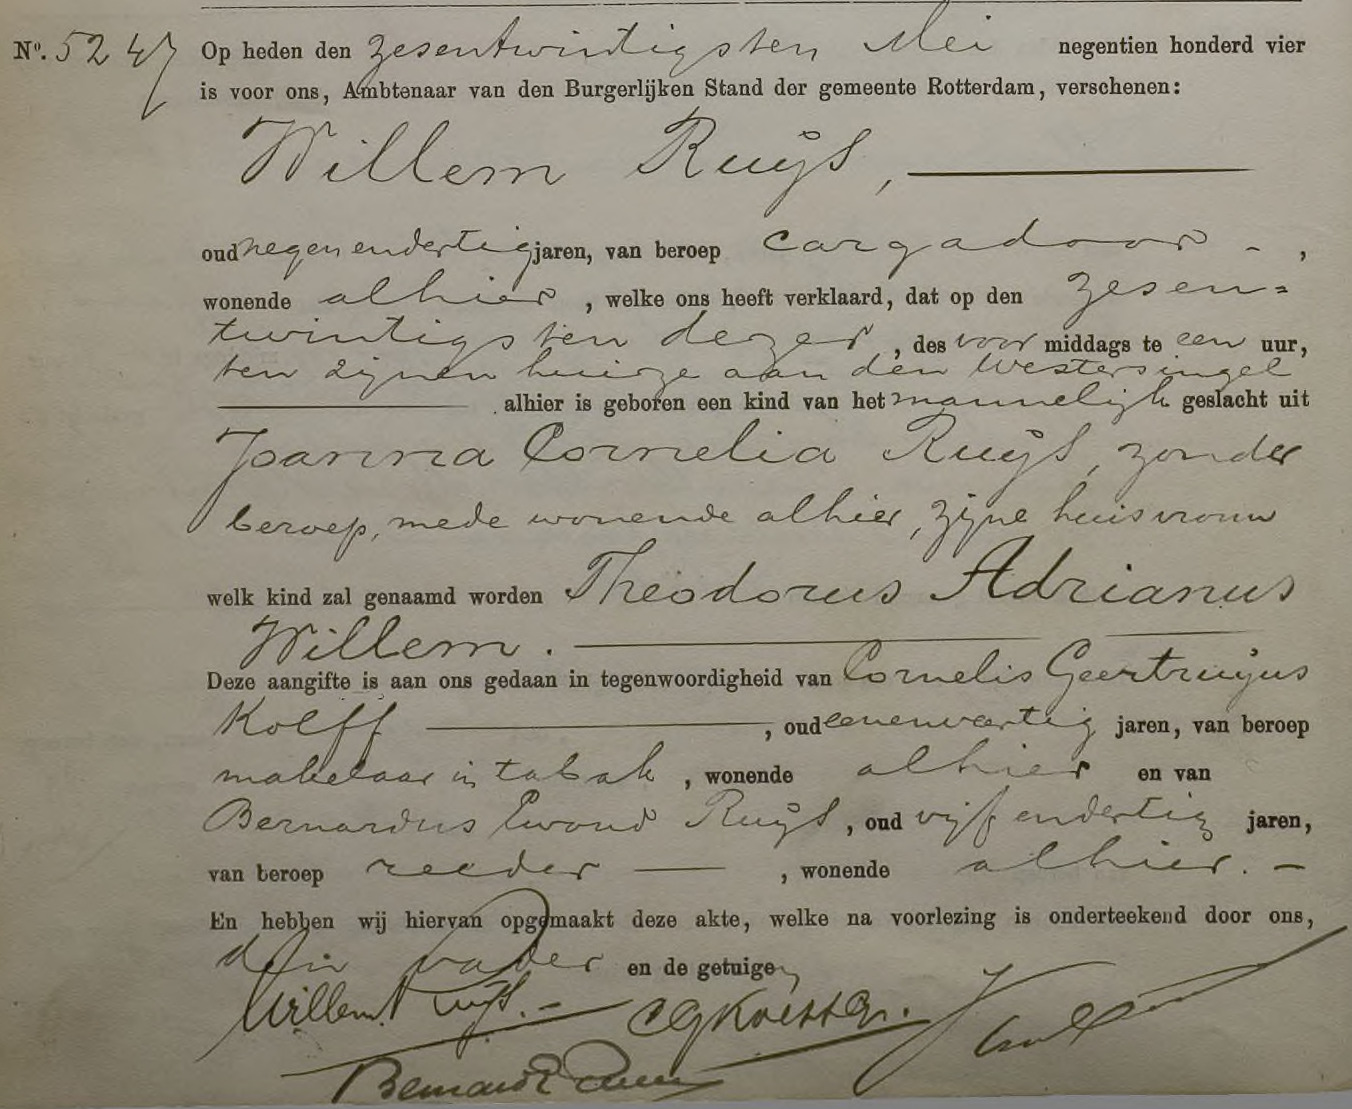 No. 5247 Op heden den zesentwintigsten Mei negentien honderd vier
is voor ons, Ambtenaar van den Burgerlijken Stand der gemeente Rotterdam, verschenen:
Willem Ruÿs,
oud negenendertig jaren, van beroep cargadoor - ,
wonende alhier , welke ons heeft verklaard, dat op den zesen=
twintigsten dezer , des voor middags te een uur,
ten zijnen huize aan den Westersingel
alhier is geboren een kind van het mannelijk geslacht uit
Joanna Cornelia Ruÿs, zonder
beroep, mede wonende alhier, zijne huisvrouw
welk kind zal genaamd worden Theodorus Adrianus
Willem.
Deze aangifte is aan ons gedaan in tegenwoordigheid van Cornelis Geertruijus
Kolff , oud eenenveertig jaren, van beroep
makelaar in tabak , wonende alhier en van
Bernardus Ewoud Ruÿs , oud vijfendertig jaren,
van beroep reeder , wonende alhier. -
En hebben wij hiervan opgemaakt deze akte, welke na voorlezing is onderteekend door ons,
den vader en de getuigen
Willem Ruÿs. - CGKolffGz.
Bernard E Ruys